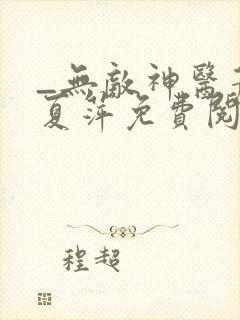 _無敵神醫
夏萍免費閱
程超